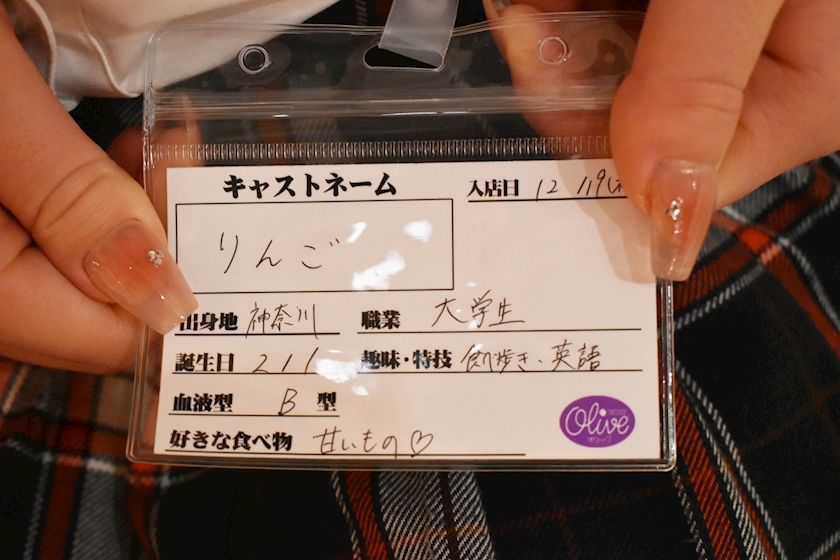 キャストネーム
入店日 12 / 19
りんご
出身地 神奈川
職業 大学生
誕生日 2 / 11
趣味・特技 食べ歩き、英語
血液型 B 型
好きな食べ物 甘いもの♡
Olive
オリーブ